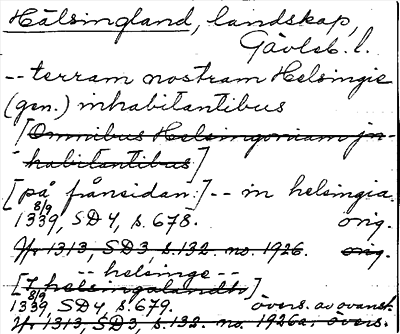 Hälsingland, landskap,
Gävleb. l.
-- terram nostram Helsingie
(gen.) inhabitantibus
[Omnibus Helsingoniam in-
habitantibus]
[på frånsidan:] -- in helsingia.
8/9
1339, SD4, s. 678. orig.
1313, SD3, s. 132. no. 1926. orig.
-- helsinge --
[I helsingalandh]
8/9
1339, SD4, s. 679. övers. av ovanst.
1313, SD3, s. 132. no. 1926a. övers.